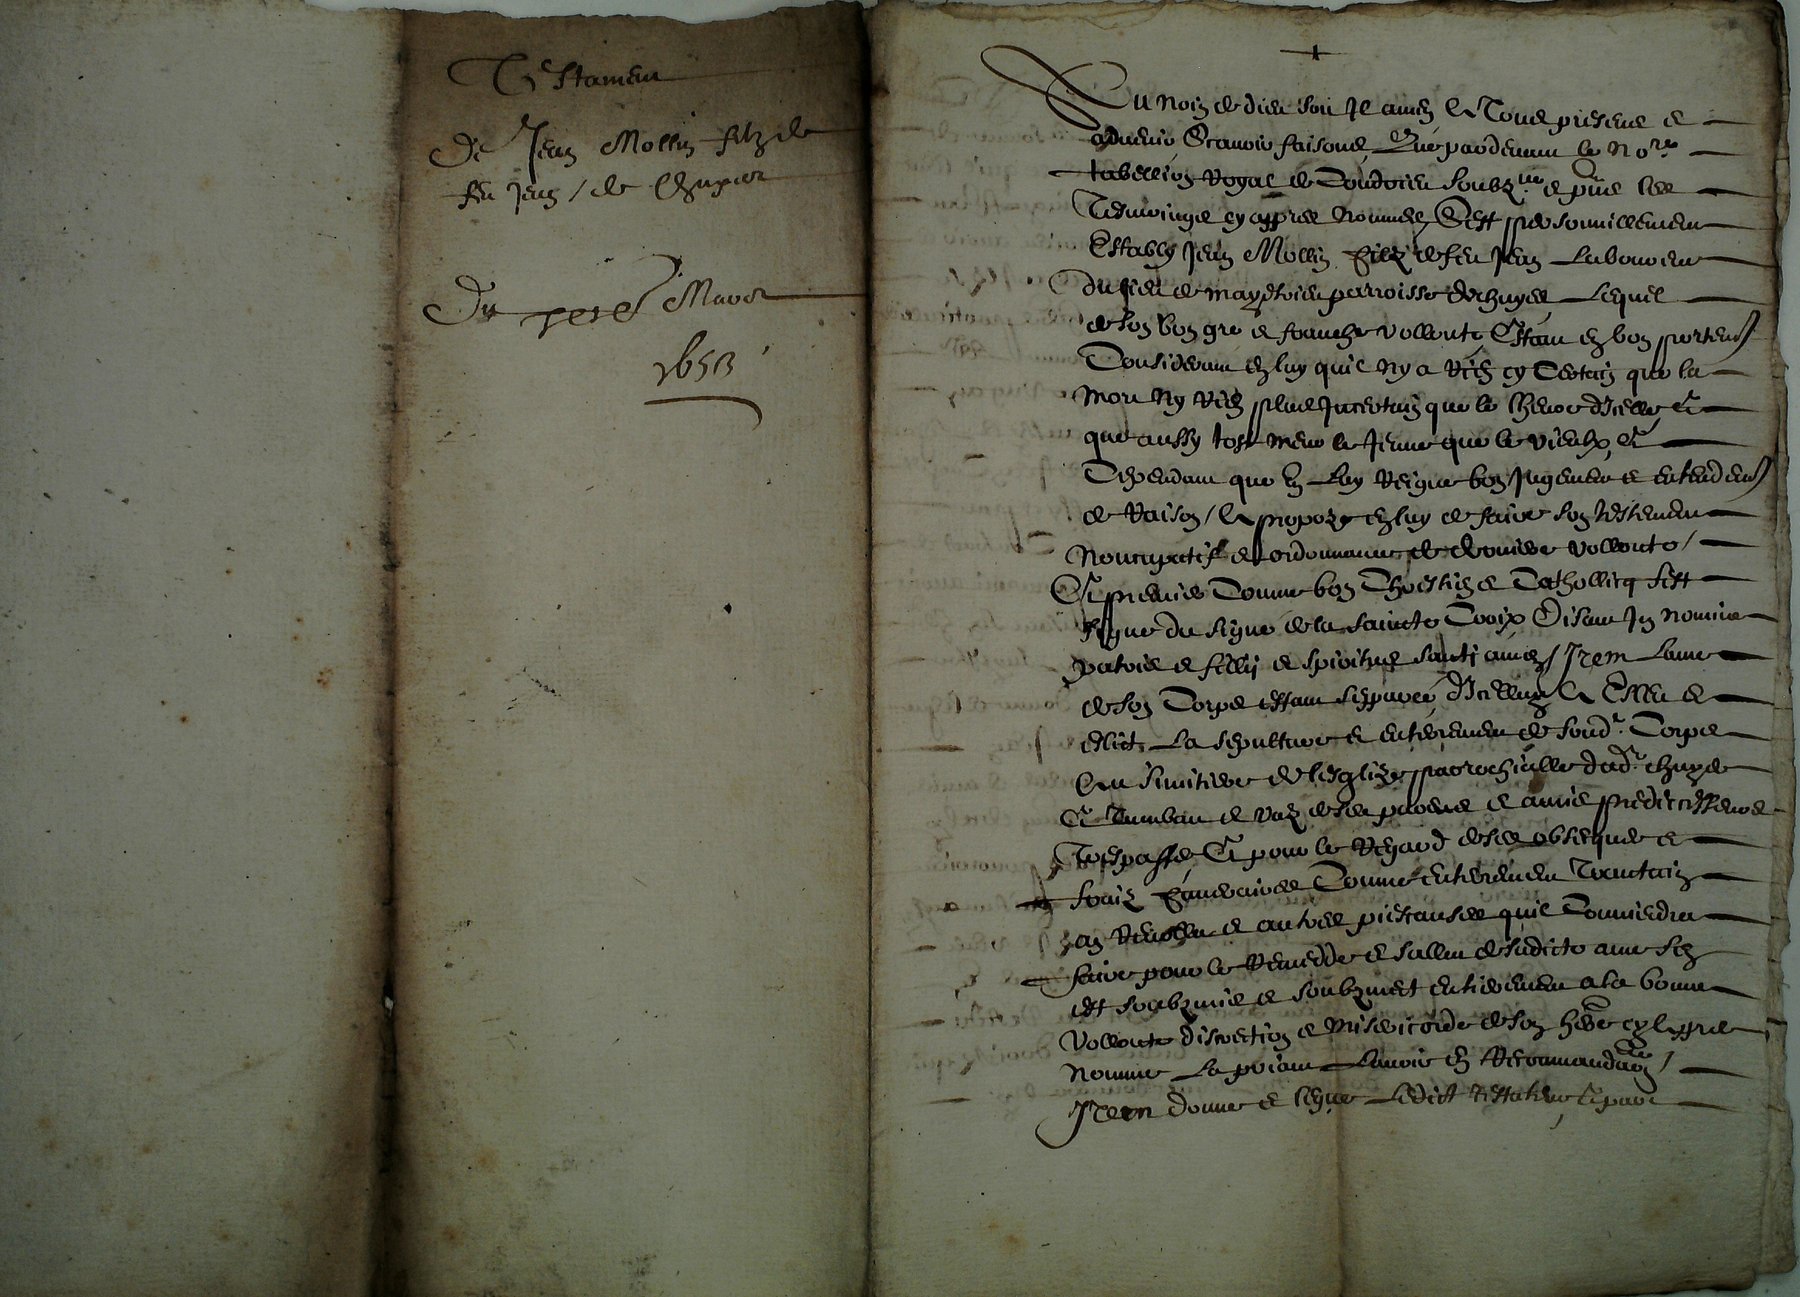 Testament
De Jean Mollin filz de
feu Jean / de Chuyer
Du Mars
1653
Au nom de dieu soit Il amen A Tous presens et
advenir Scavoir faisons Que pardevant le No.re
tabellion Royal de Condrieu soubz.ne et pns les
Tesmoings cy appres nommes S'est personnellement
Estably Jean Mollin filz de feu Jean Laboureur
Du lieu de parroisse de chuyes Lequel
de son bon gre et franche vollonte Estant en bon portemt
Considerant en luy quil ny a Rien sy Certain que la
Mort Ny Rien plus Incertain que le Lheure d'Icelle et
que aussy tost meur le Jeune que le vieulx, Et
Cependant que En Luy Reigne bon Jugement et entendemt
de Raison / A propoze en luy de faire son testement
Noncupatif et ordonnance de derniere vollonte /
Et premier Comme bon Chrestien et Cathollicq s'est
signe du signe de la saincte Croix Disant In nomine
patris et fillij et spiritus santi amen / Item Lame
de son Corps estant sepparee d'Icelluy A Esleu et
eslict La sepulture et enterrement de sond.t Corps
Au simitiere de lesglize parrochialle dud.t chuyes
Et Tumbeau et vaz de ses parens et amis predecesseurs
Trespasses Et pour le Regard de ses obseques et
fraiz funeraires Comme enterrement Trantain
an Revollu et autres pictanses quil Conviendra
faire pour le Remedde et sallut de sadicte ame s'en
est soubzmis et soubzmect entierement a la bonne
Vollonte discretion et Misericorde de son here cy appres
nomme La priant Lavoir en Recommandaon /
Item donne et legue Ledict testateur Et par